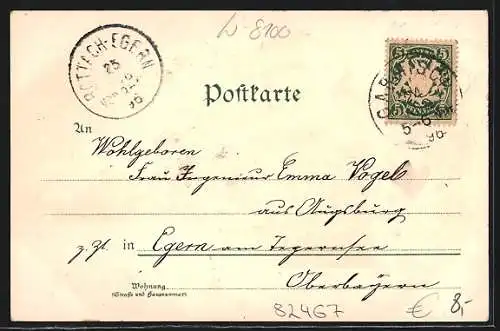 W-8100
ROTTACH-EGERN
25
96
5
5
5-6
96
Postkarte
An
Wohlgeboren
Frau Ingenieur Emma Vogel
aus Augsburg
z. Zt. in Egern am Tegernsee
Wohnung
(Straße und Hausnummer)
Oberbayern
82467
€ 8,-